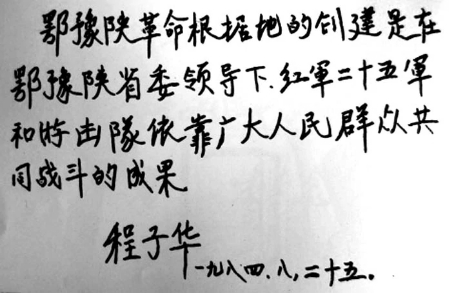 鄂豫陕革命根据地的创建是在
鄂豫陕省委领导下.红軍二十五軍
和游击隊依靠广大人民群众共
同战斗的成果
程子华
一九八四.八,二十五.